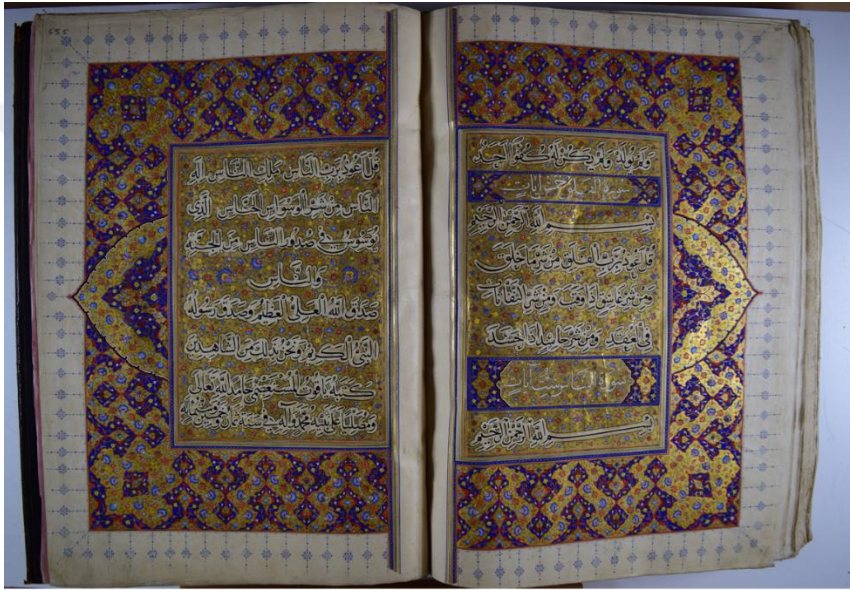 ولم يولد ولم يكن له كفوا احد
سورة الفلق خمس ايات
بسم الله الرحمن الرحيم
قل اعوذ برب الفلق من شر ما خلق
ومن شر غاسق اذا وقب ومن شر النفاثات
في العقد ومن شر حاسد اذا حسد
سورة الناس ست ايات
بسم الله الرحمن الرحيم
قل اعوذ برب الناس ملك الناس اله
الناس من شر الوسواس الخناس الذي
يوسوس في صدور الناس من الجنة
والناس
صدق الله العلي العظيم وصدق رسوله
النبي الكريم ونحن على ذلك من الشاهدين
كتبه ياقوت المستعصمي حامدا لله تعالى
ومصليا على نبيه محمد وآله في سنة